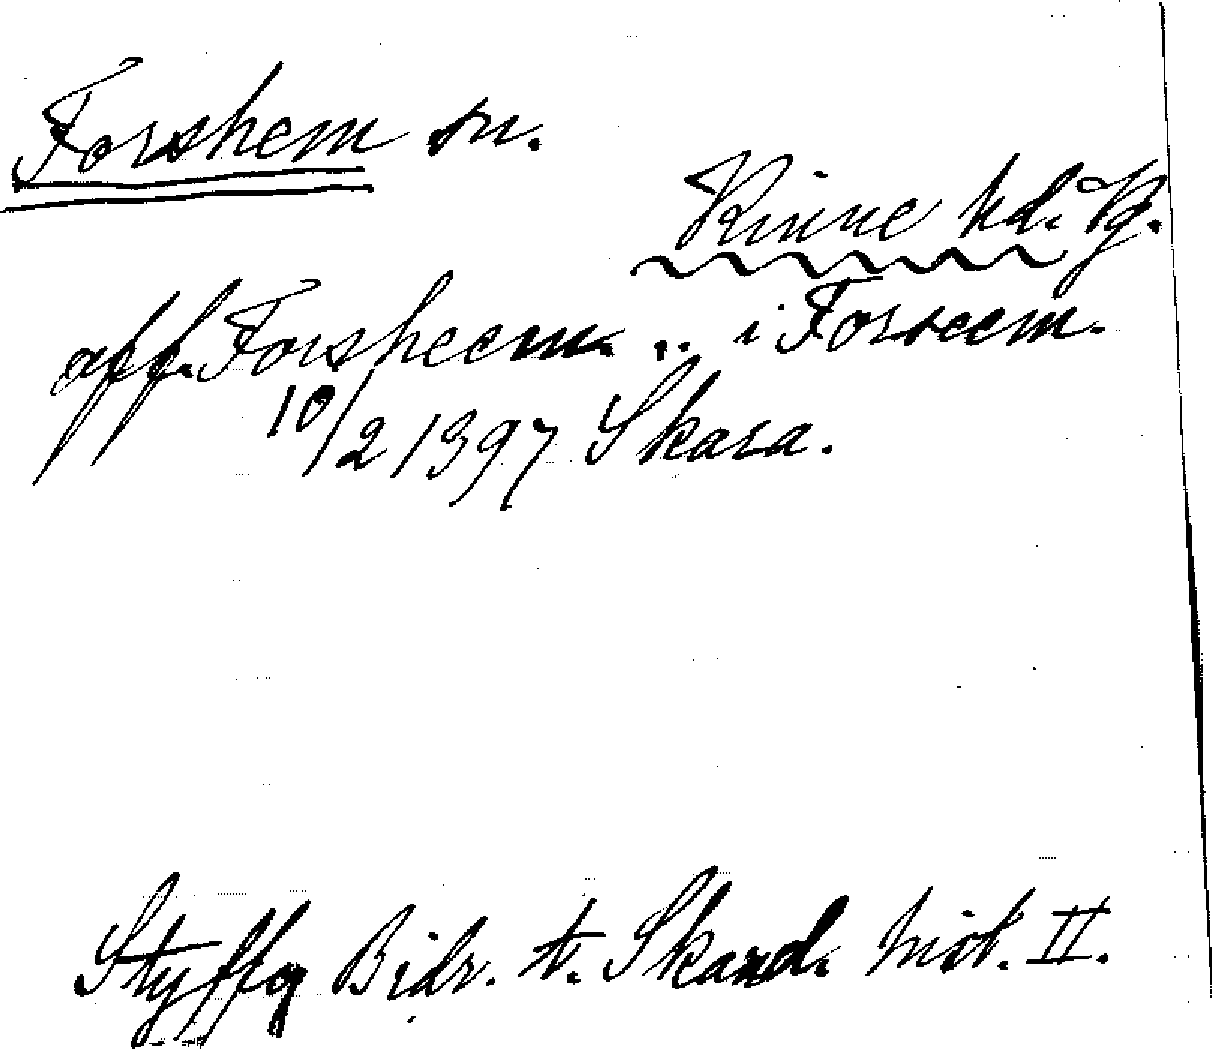 Forshem sn.
Kinne hd. Vg.
aff. Forsheem. .. i Forseem.
10/2 1397 Skara.
Styffe Bidr. t. Skand. hist. II.